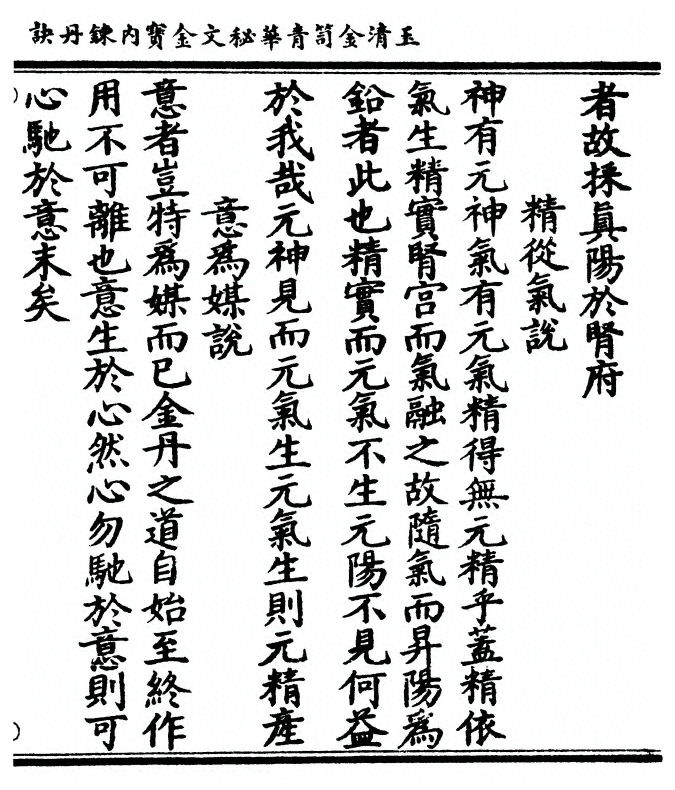 玉清金笥青華秘文金寶內鍊丹訣
者故採眞陽於腎府
精從氣說
神有元神氣有元氣精得無元精乎蓋精依
氣生精實腎宮而氣融之故隨氣而昇陽爲
鉛者此也精實而元氣不生元陽不見何益
於我哉元神見而元氣生元氣生則元精產
意爲媒說
意者豈特爲媒而已金丹之道自始至終作
用不可離也意生於心然心勿馳於意則可
心馳於意末矣